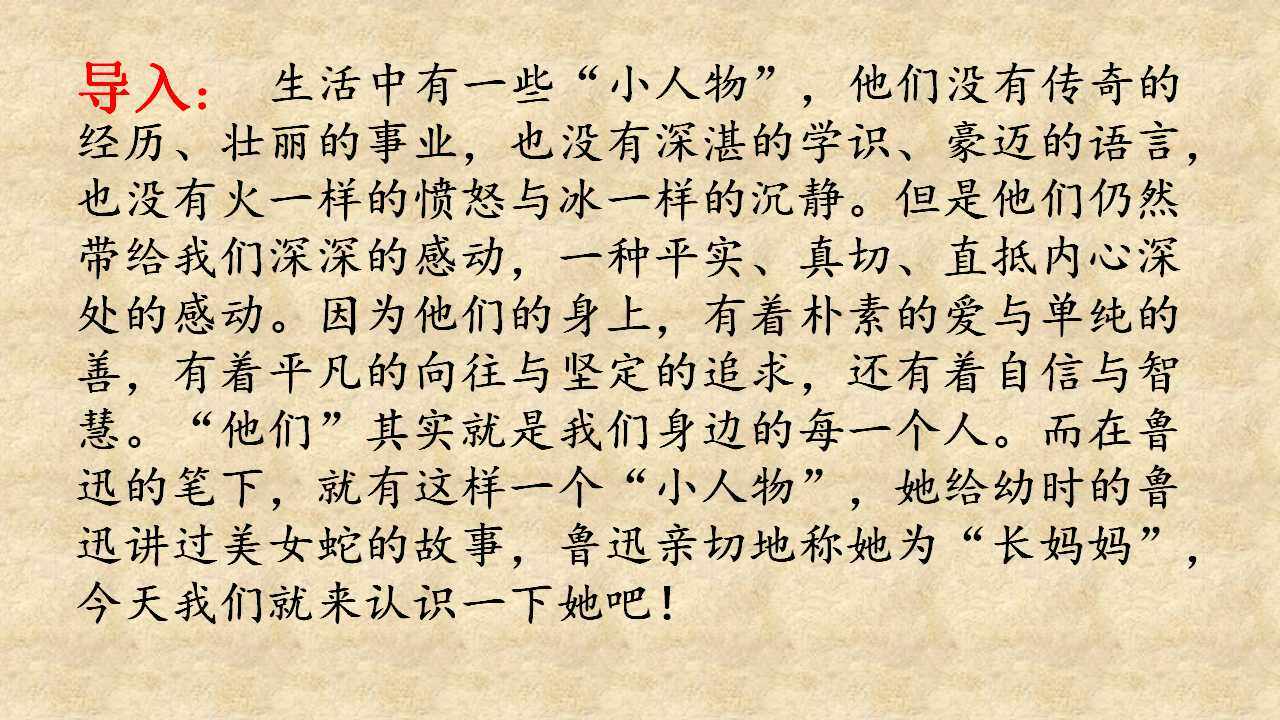 导入： 生活中有一些“小人物”，他们没有传奇的
经历、壮丽的事业，也没有深湛的学识、豪迈的语言，
也没有火一样的愤怒与冰一样的沉静。但是他们仍然
带给我们深深的感动，一种平实、真切、直抵内心深
处的感动。因为他们的身上，有着朴素的爱与单纯的
善，有着平凡的向往与坚定的追求，还有着自信与智
慧。“他们”其实就是我们身边的每一个人。而在鲁
迅的笔下，就有这样一个“小人物”，她给幼时的鲁
迅讲过美女蛇的故事，鲁迅亲切地称她为“长妈妈”，
今天我们就来认识一下她吧！